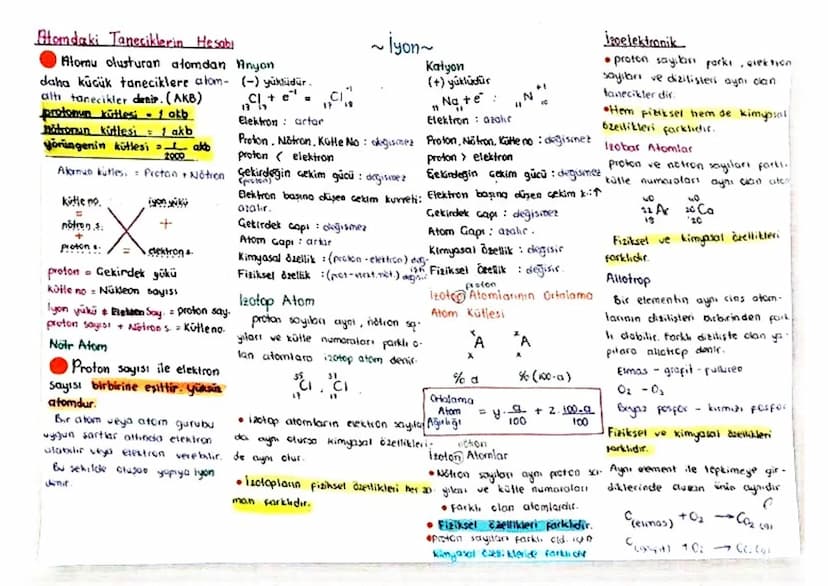 Atomdaki Taneciklerin Hesabı
Atomu oluşturan atomdan
daha küçük taneciklere atom-
altı tanecikler denir. (AKB)
protonun kütlesi = 1 akb
nötronun kütlesi = 1 akb
yörüngenin kütlesi = 1/2000 akb
Atomun kütlesi = Proton + Nötron
kütle no. iyon yükü
= +
nötron s. =
+ elektron s.
proton s.
proton = Çekirdek yükü
kütle no = Nükleon sayısı
İyon yükü + Elektron Say. = proton say.
proton sayısı + Nötron s. = Kütle no.
Nötr Atom
Proton sayısı ile elektron
sayısı birbirine eşittir. yüksüz
atomdur.
Bir atom veya atom gurubu
uygun şartlar altında elektron
alabilir veya elektron verebilir.
Bu şekilde oluşan yapıya iyon
denir.
~ İyon ~
Anyon
(-) yüklüdür.
17 Cl 17 + e⁻¹ = 17 Cl 18 ⁻¹
Elektron : artar
Proton, Nötron, Kütle No : değişmez
proton < elektron
Çekirdeğin çekim gücü : değişmez
(proton)
Elektron başına düşen çekim kuvveti:
azalır.
Çekirdek çapı : değişmez
Atom çapı : artar
Kimyasal Özellik : (proton - elektron)
Fiziksel özellik :
İzotop Atom
proton sayıları aynı, nötron sa-
yıları ve kütle numaraları farklı o-
lan atomlara izotop atom denir.
35 17 Cl 17 Cl
• İzotop atomların elektron sayıları
da aynı olursa kimyasal özellikleri-
de aynı olur.
• İzotopların fiziksel özellikleri her za-
man farklıdır.
Katyon
(+) yüklüdür
11 Na + e⁻ : 11 N ⁺¹ 10
Elektron : azalır
Proton, Nötron, Kütle no : değişmez
proton > elektron
Çekirdeğin çekim gücü : değişmez
Elektron başına düşen çekim k: ↑
Çekirdek çapı : değişmez
Atom Çapı : azalır.
Kimyasal Özellik : değişir
Fiziksel Özellik : değişir.
proton
İzotop Atomlarının Ortalama
Atom Kütlesi
A A
% a % (100-a)
Ortalama
Atom = y. a/100 + z. 100-a/100
Ağırlığı
nötron
İzoton Atomlar
• Nötron sayıları aynı proton sa-
yıları ve kütle numaraları
• farklı olan atomlardır.
• Fiziksel özellikleri farklıdır.
• proton sayıları farklı old. için
kimyasal özellikleride farklıdır
İzoelektronik
• proton sayıları farkı, elektron
sayıları ve dizilişleri aynı olan
taneciklerdir.
• Hem fiziksel hem de kimyasal
özellikleri farklıdır.
İzobar Atomlar
proton ve nötron sayıları farklı
kütle numaraları aynı olan atom
40 22 Ar 18 40 20 Ca 20
Fiziksel ve kimyasal özellikleri
farklıdır.
Allotrop
Bir elementin aynı cins atom-
larının dizilişleri birbirinden fark
lı olabilir. Farklı dizilişte olan ya-
pılara allotrop denir.
Elmas - grafit - fulleren
O₂ - O₃
Beyaz fosfor - kırmızı fosfor
Fiziksel ve kimyasal özellikleri
farklıdır.
Aynı element ile tepkimeye gir-
diklerinde oluşan ürün aynıdır
C(elmas) + O₂ → CO₂ (g)
C(grafit) + O₂ → CO₂ (g)